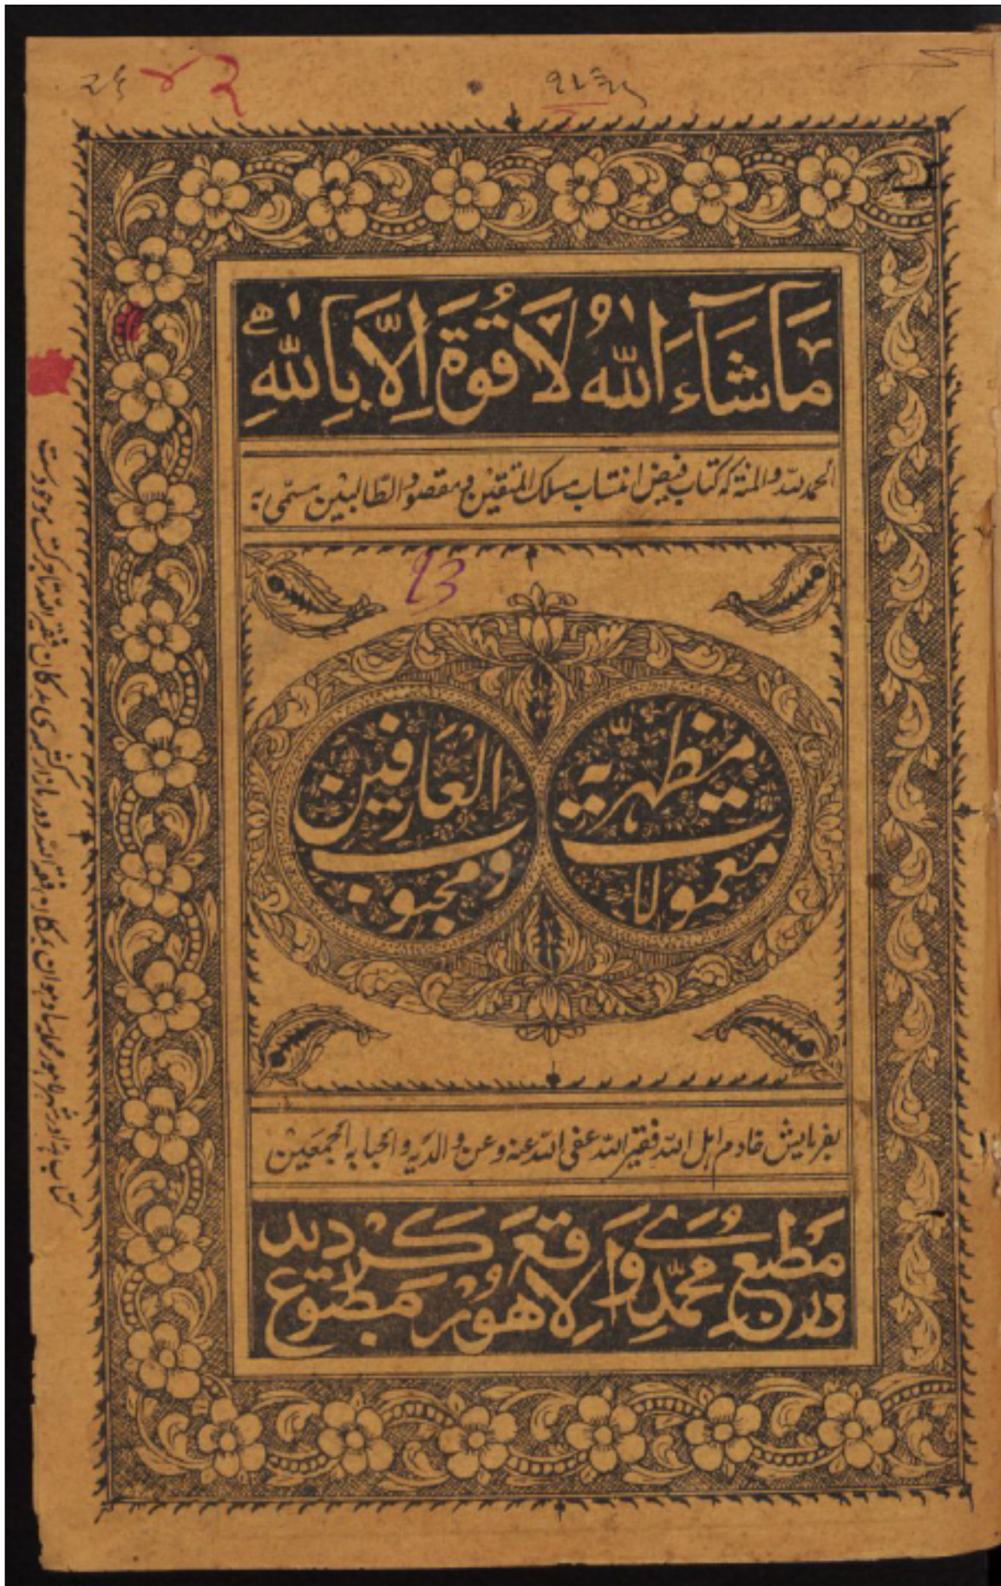 مَا شَاءَ اللهُ لَا قُوَّةَ اِلَّا بِاللهِ
الحمد لله والمنة که کتاب فیض انتساب مسلک المتقین و مقصود الطالبین مسمی به
معمولات مظهریه
و محبوب العارفین
بفرمایش خادم اهل الله فقیر الله عفی الله عنه و عن والدیه و احبابه اجمعین
در مطبع محمدی واقع لاهور مطبوع گردید
23